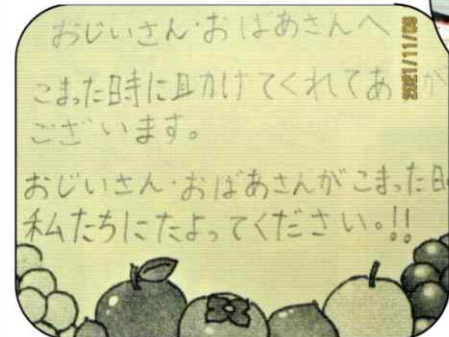 おじいさん・おばあさんへ
こまった時に助けてくれてあ が
ございます。
おじいさん・おばあさんがこまった
私たちにたよってください。!!
2021/11/09